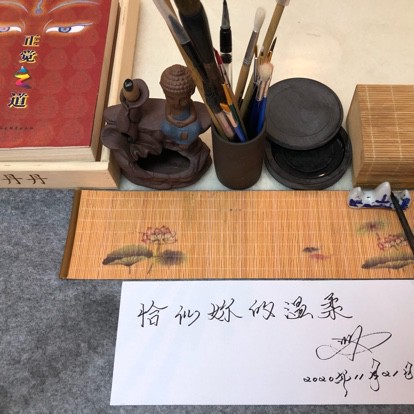 正觉之道
丹丹
恰似妳的温柔
2020年11月21日